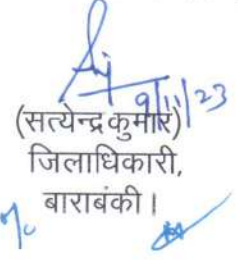 9/11/23
(सत्येन्द्र कुमार)
जिलाधिकारी,
बाराबंकी।